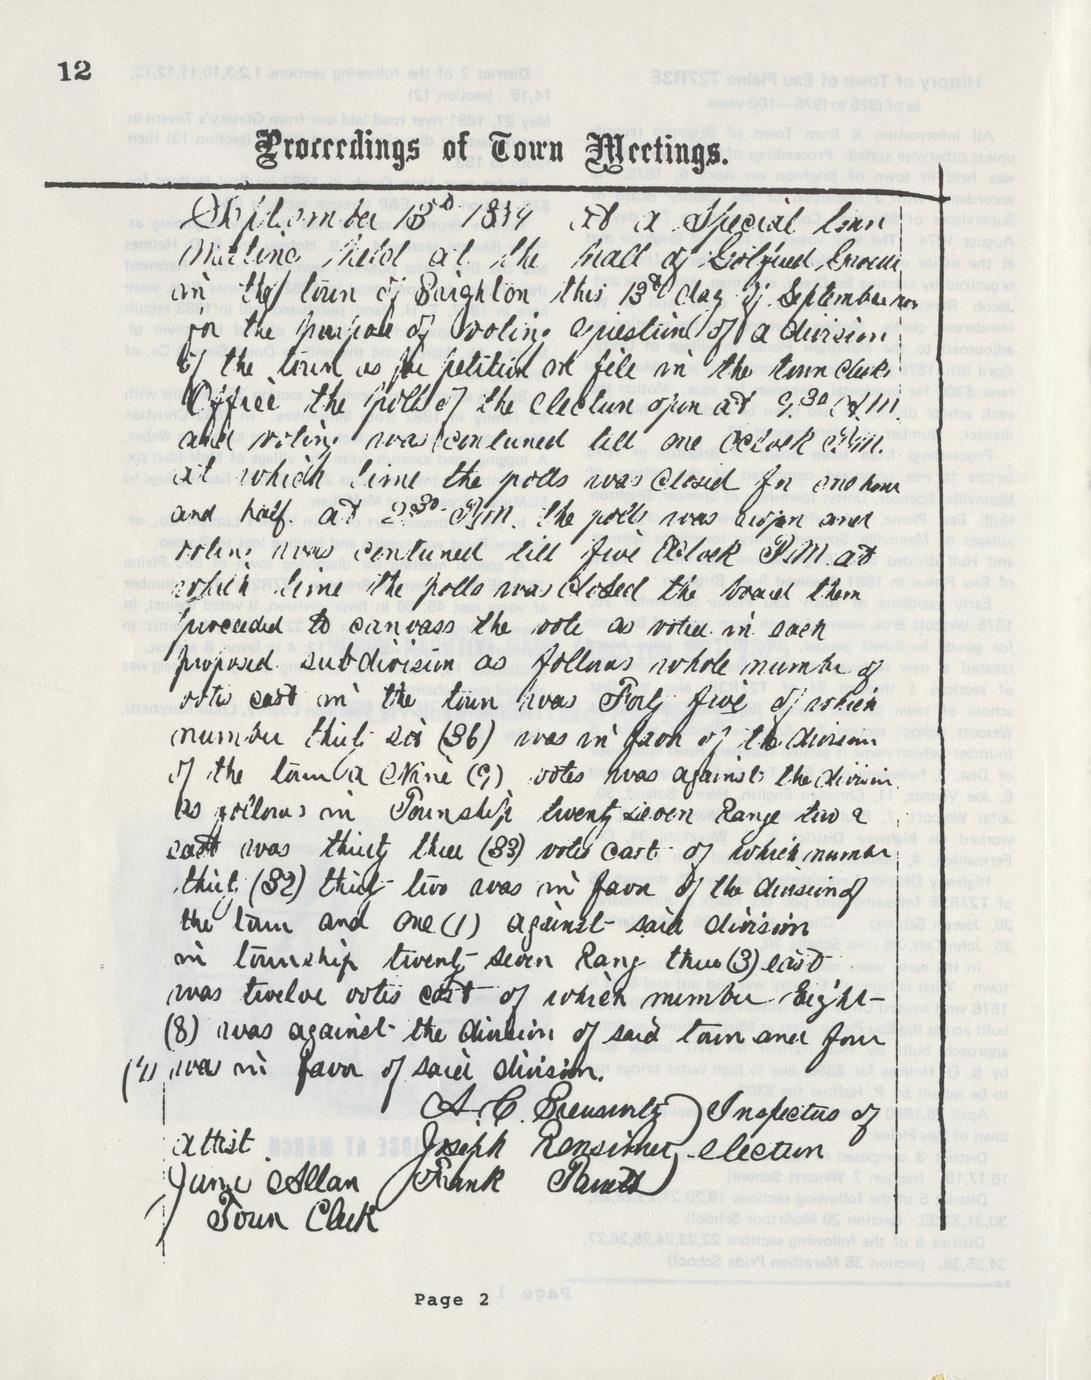 12
Proceedings of Town Meetings.
September 13th 1884 at a Special town
Meeting held at the hall of
in the town of Brighton this 13th day of September
for the purpose of voting question of a division
of the town as per petition on file in the town clerks
Office the polls of the election open at 9.30 A.M.
and voting was contuned till one Oclock P.M.
at which time the polls was closed for one hour
and half. at 2.30 P.M. the polls was open and
voting was contuned till five Oclock P.M. at
which time the polls was closed the board then
proceded to canvass the vote as voted in each
proposed subdivision as follows whole number of
votes cast in the town was Forty five of which
number thirty six (36) was in favor of the division
of the town a Nine (9) votes was against the division
as follows in Township twenty seven Range two 2
east was thirty three (33) votes cast of which number
thirty (32) thirty two was in favor of the division of
the town and one (1) against said division
in township twenty seven Rang three (3) east
was twelve votes cast of which number Eight
(8) was against the division of said town and four
(4) was in favor of said division.
A. C. Inspectors of
attest Joseph election
Allan Frank
Town Clerk
Page 2